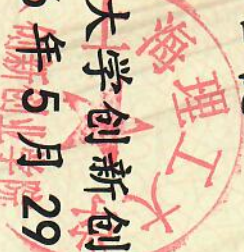 大学创新创
年5月29
海理工大
创新创业学院